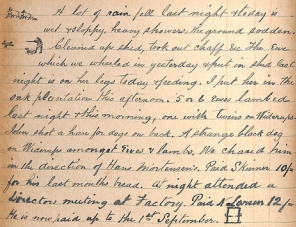 A lot of rain fell last night & today is
wet & sloppy, heavy showers, the ground sodden.
Cleaned up shed, took out chaff &c. The Ewe
which we wheeled in yesterday & put in shed last
night is on her legs today & feeding. I put her in the
oak plantation this afternoon. 5 or 6 ewes lambed
last night & this morning, one with twins on Widerups
John shot a hare for dogs on back. A strange black dog
on Widerups amongst Ewes & lambs. We chased him
in the direction of Hans Mortensen's. Paid Skinner 10/-
for his last months bread. At night attended a
Directors meeting at Factory. Paid N Larsen 12/-
He is now paid up to the 1st September.